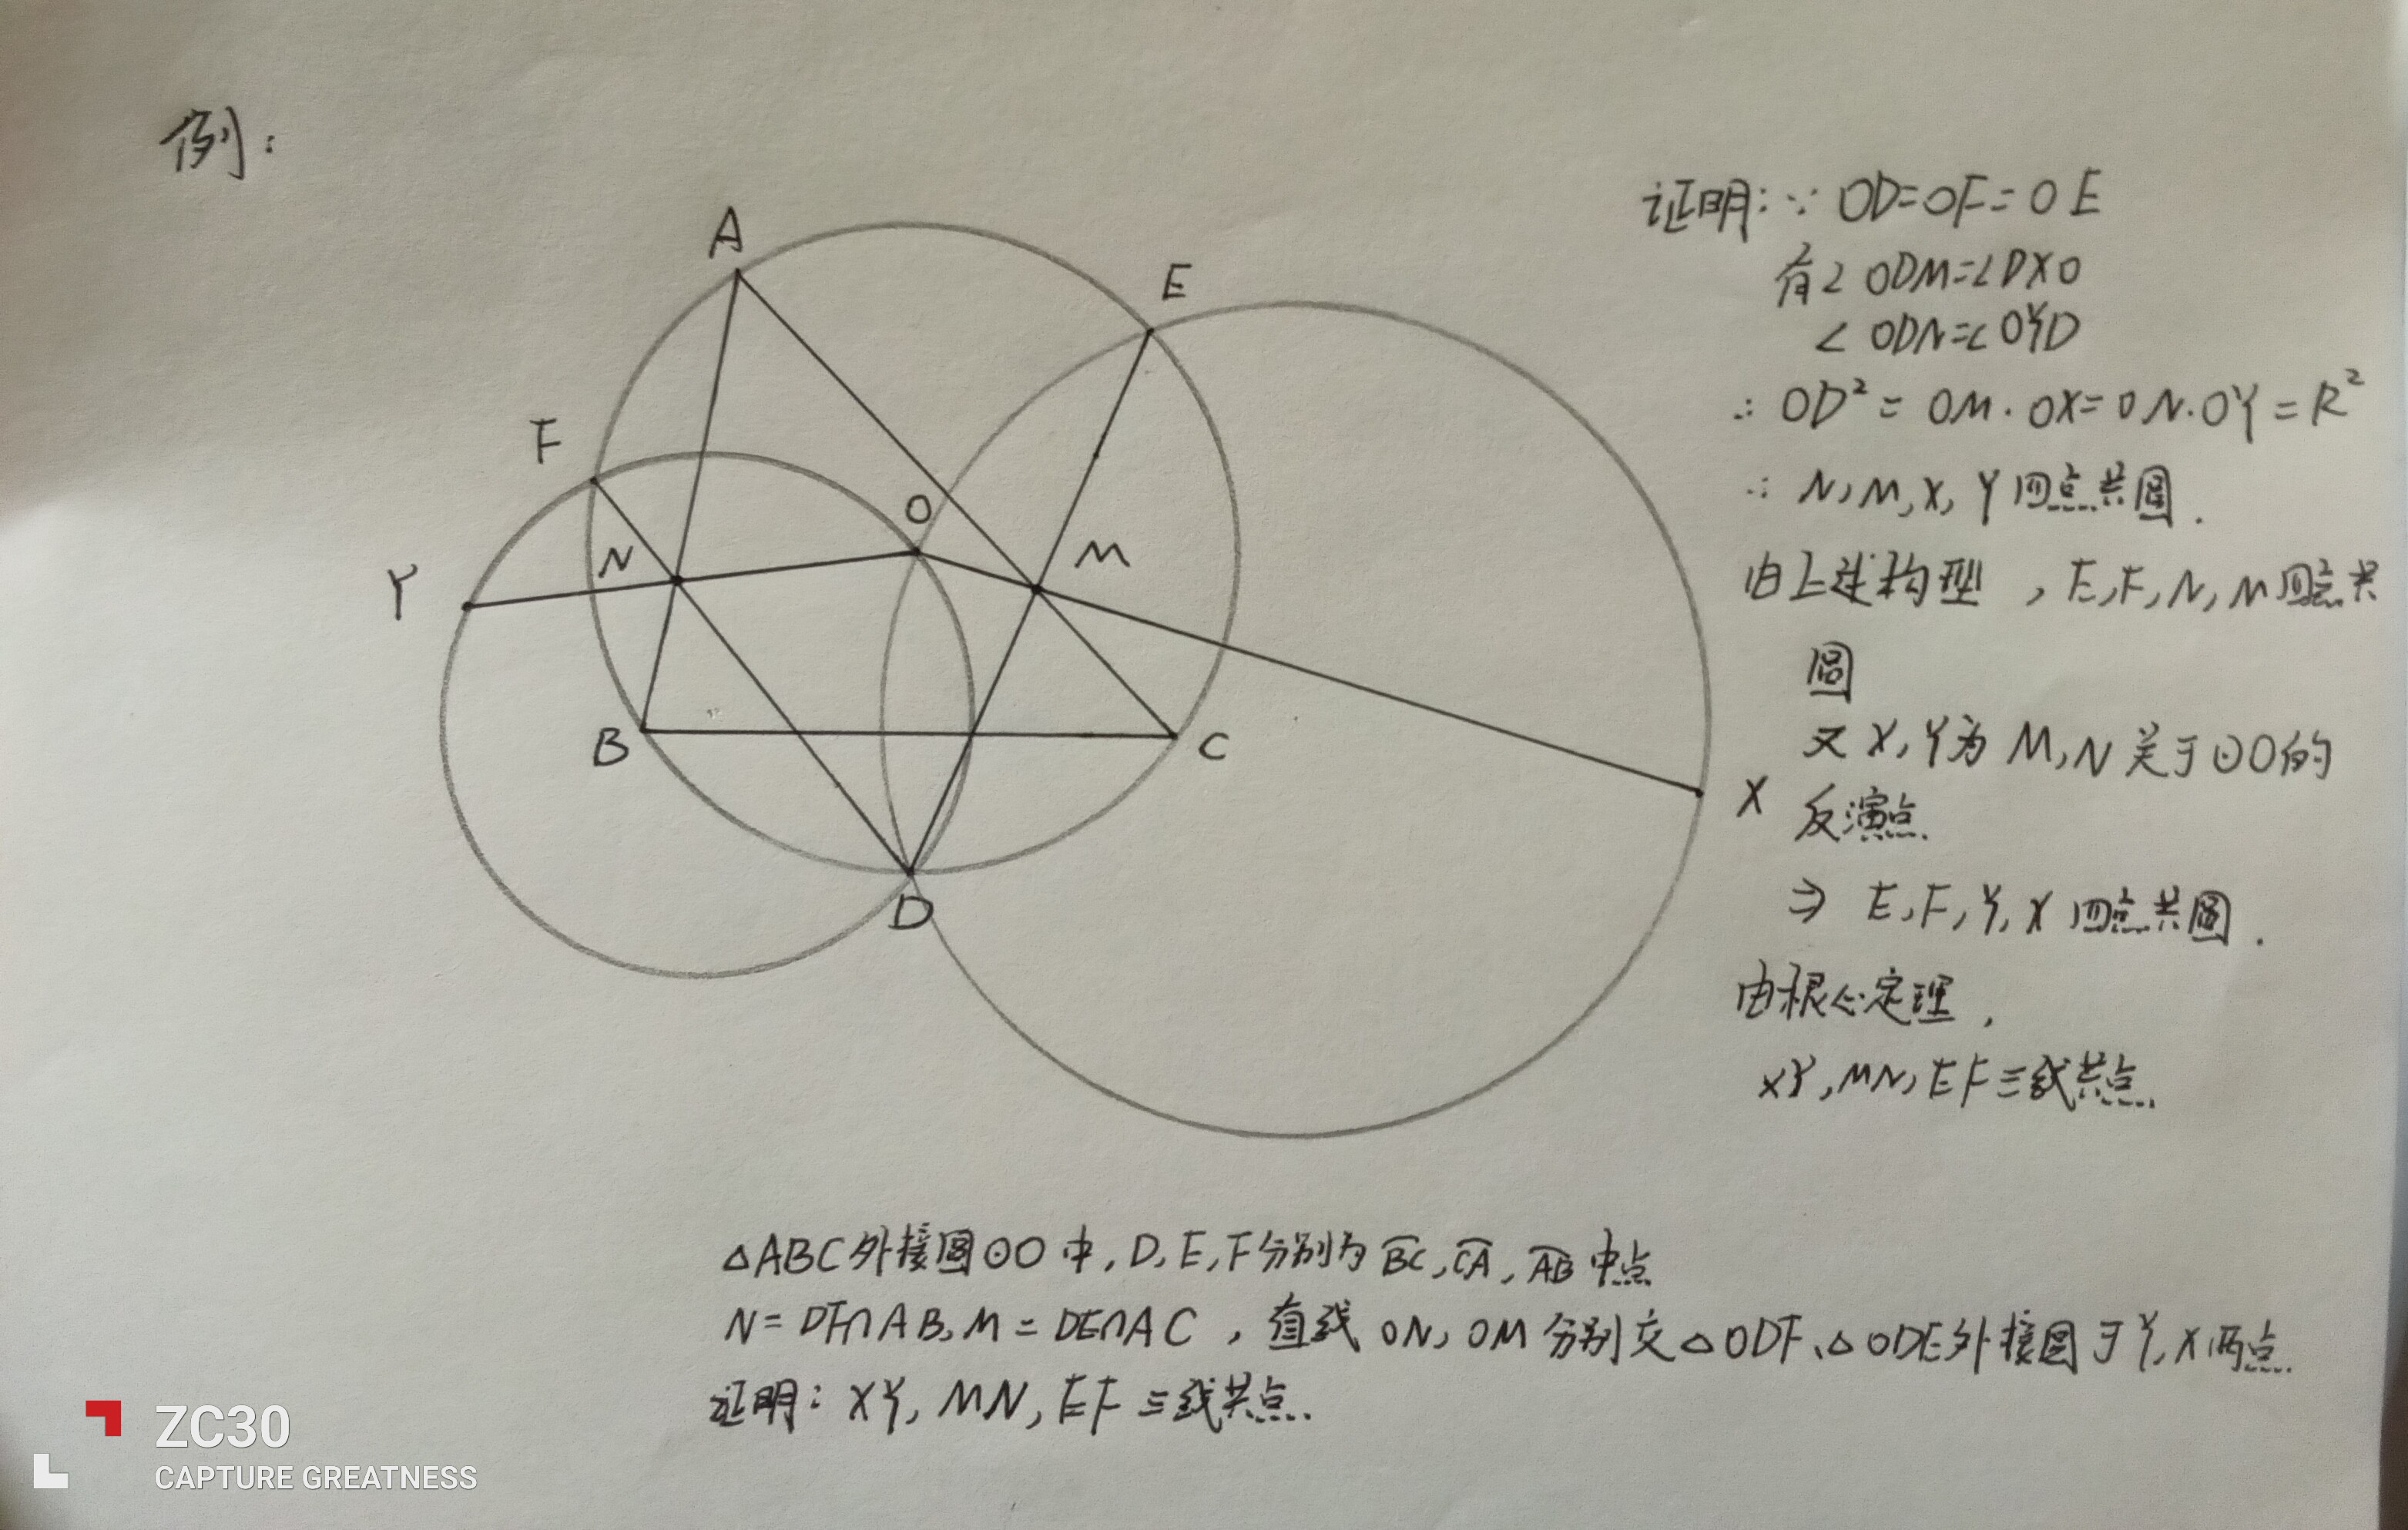 例：
A
E
F
O
N
M
Y
B
C
X
D
证明：∵ OD=OF=OE
有∠ODM=∠DXO
∠ODN=∠OYD
∴ OD²= OM·OX=ON·OY=R²
∴ N,M,X,Y四点共圆.
由上述构型，E,F,N,M四点共
圆
又X,Y为M,N关于⊙O的
反演点.
⇒ E,F,Y,X四点共圆.
由根心定理，
XY,MN,EF三线共点.
△ABC外接圆⊙O中,D,E,F分别为B͡C,C͡A,A͡B中点
N=DF∩AB,M=DE∩AC，直线ON,OM分别交△ODF、△ODE外接圆于Y,X两点.
证明：XY,MN,EF三线共点.
ZC30
CAPTURE GREATNESS